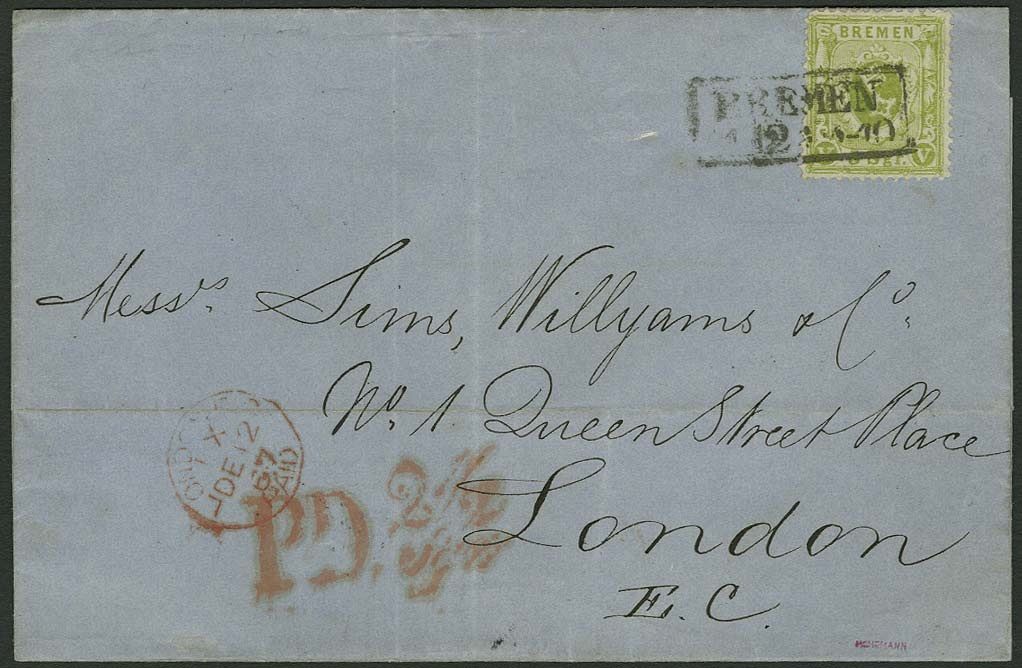 BREMEN
BREMEN
12
5 Sgr.
Messrs. Sims, Willyams & Co.
No. 1 Queen Street Place
London
E. C.
LONDON
X
DE 12
67
PAID
P.d.